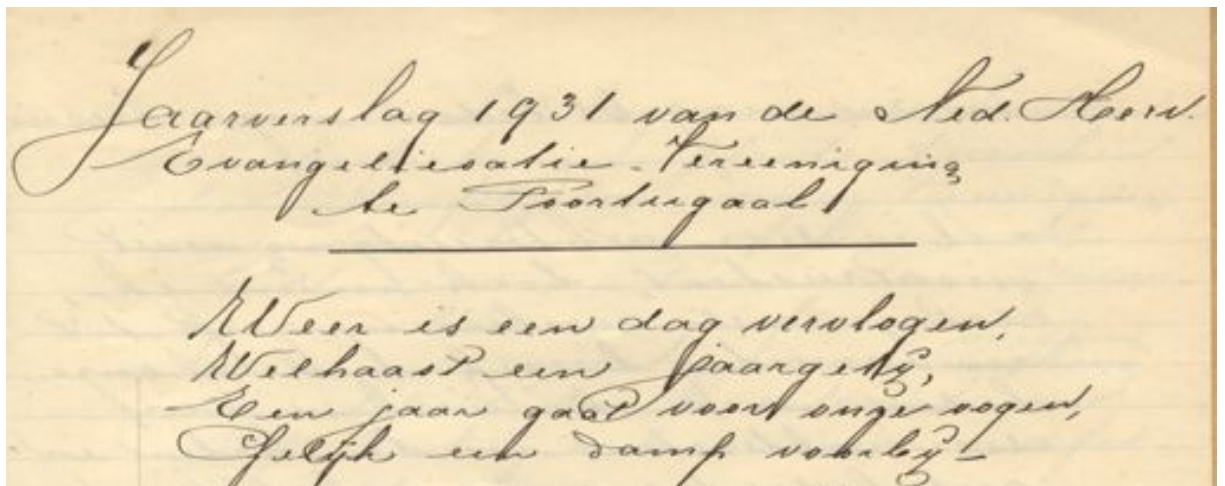 Jaarverslag 1931 van de Ned. Herv.
Evangeliesatie-Vereeniging
te Poortugaal
Weer is een dag vervlogen,
Welhaast een jaargetij,
Een jaar gaat voor onze oogen,
Gelijk een damp voorbij –